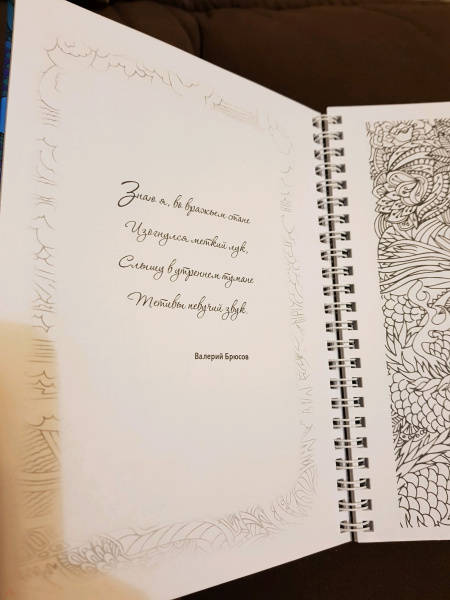 Знаю я, во вражьем стане
Изогнулся меткий лук,
Слышу в утреннем тумане
Тетивы певучий звук.
Валерий Брюсов